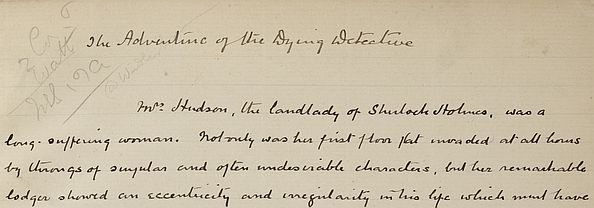 The Adventure of the Dying Detective
Mrs Hudson, the landlady of Sherlock Holmes, was a
long-suffering woman. Not only was her first floor flat invaded at all hours
by throngs of singular and often undesirable characters, but her remarkable
lodger showed an eccentricity and irregularity in his life which must have